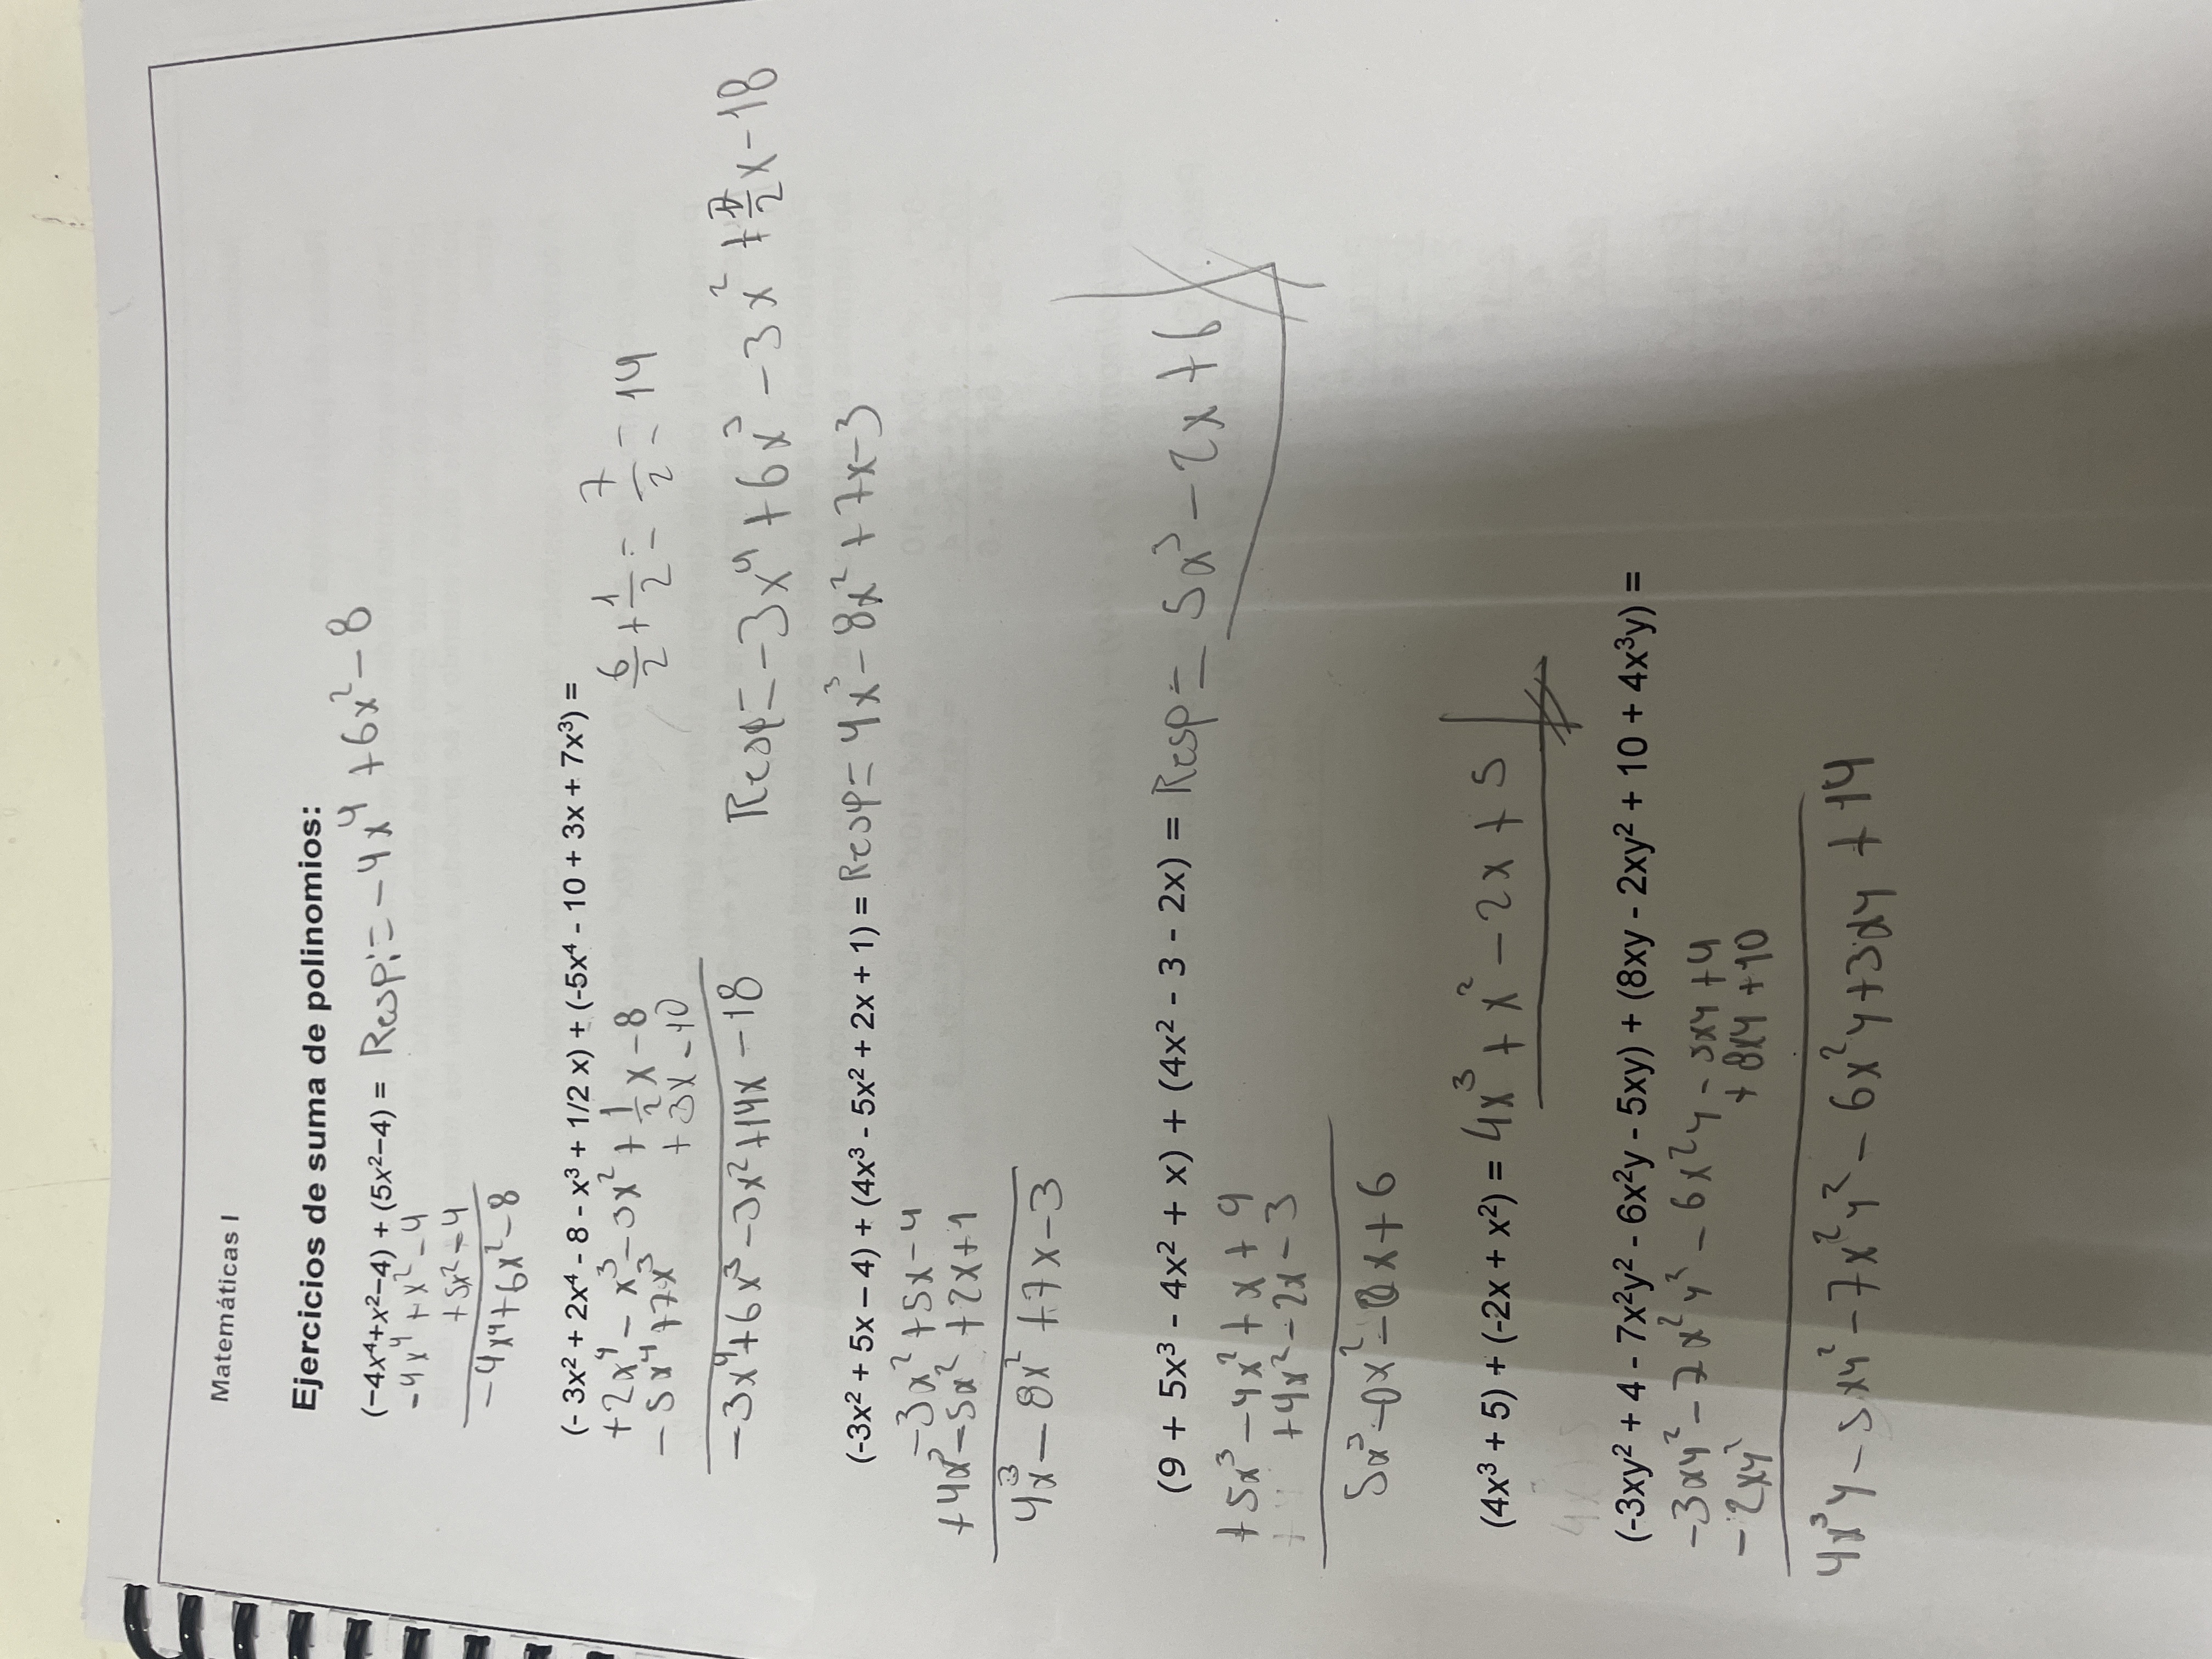 Matemáticas I
Ejercicios de suma de polinomios:
(−4x⁴+x²−4) + (5x²−4) = Resp:= −4x⁴ + 6x² − 8
−4x⁴ + x² − 4
+5x² − 4
−4x⁴ + 6x² − 8
(- 3x² + 2x⁴ - 8 - x³ + 1/2 x) + (-5x⁴ - 10 + 3x + 7x³) =
+2x⁴ − x³ − 3x² + 1/2 x − 8
− 5x⁴ + 7x³ + 3x − 10
6/2 + 1/2 = 7/2 = 14
−3x⁴ + 6x³ − 3x² + 14x − 18
Resp = −3x⁴ + 6x³ − 3x² + 7/2 x − 18
(-3x² + 5x – 4) + (4x³ - 5x² + 2x + 1) = Resp = 4x³ − 8x² + 7x − 3
−3x² + 5x − 4
+4x³ − 5x² + 2x + 1
4x³ − 8x² + 7x − 3
(9 + 5x³ - 4x² + x) + (4x² - 3 - 2x) = Resp = 5x³ − 2x + 6
+5x³ − 4x² + x + 9
+4x² − 2x − 3
5x³ − 0x² − x + 6
(4x³ + 5) + (-2x + x²) = 4x³ + x² − 2x + 5
(-3xy² + 4 - 7x²y² - 6x²y - 5xy) + (8xy - 2xy² + 10 + 4x³y) =
−3xy² − 7x²y² − 6x²y − 5xy + 4
− 2xy² + 8xy + 10
4x³y − 5xy² − 7x²y² − 6x²y + 3xy + 14